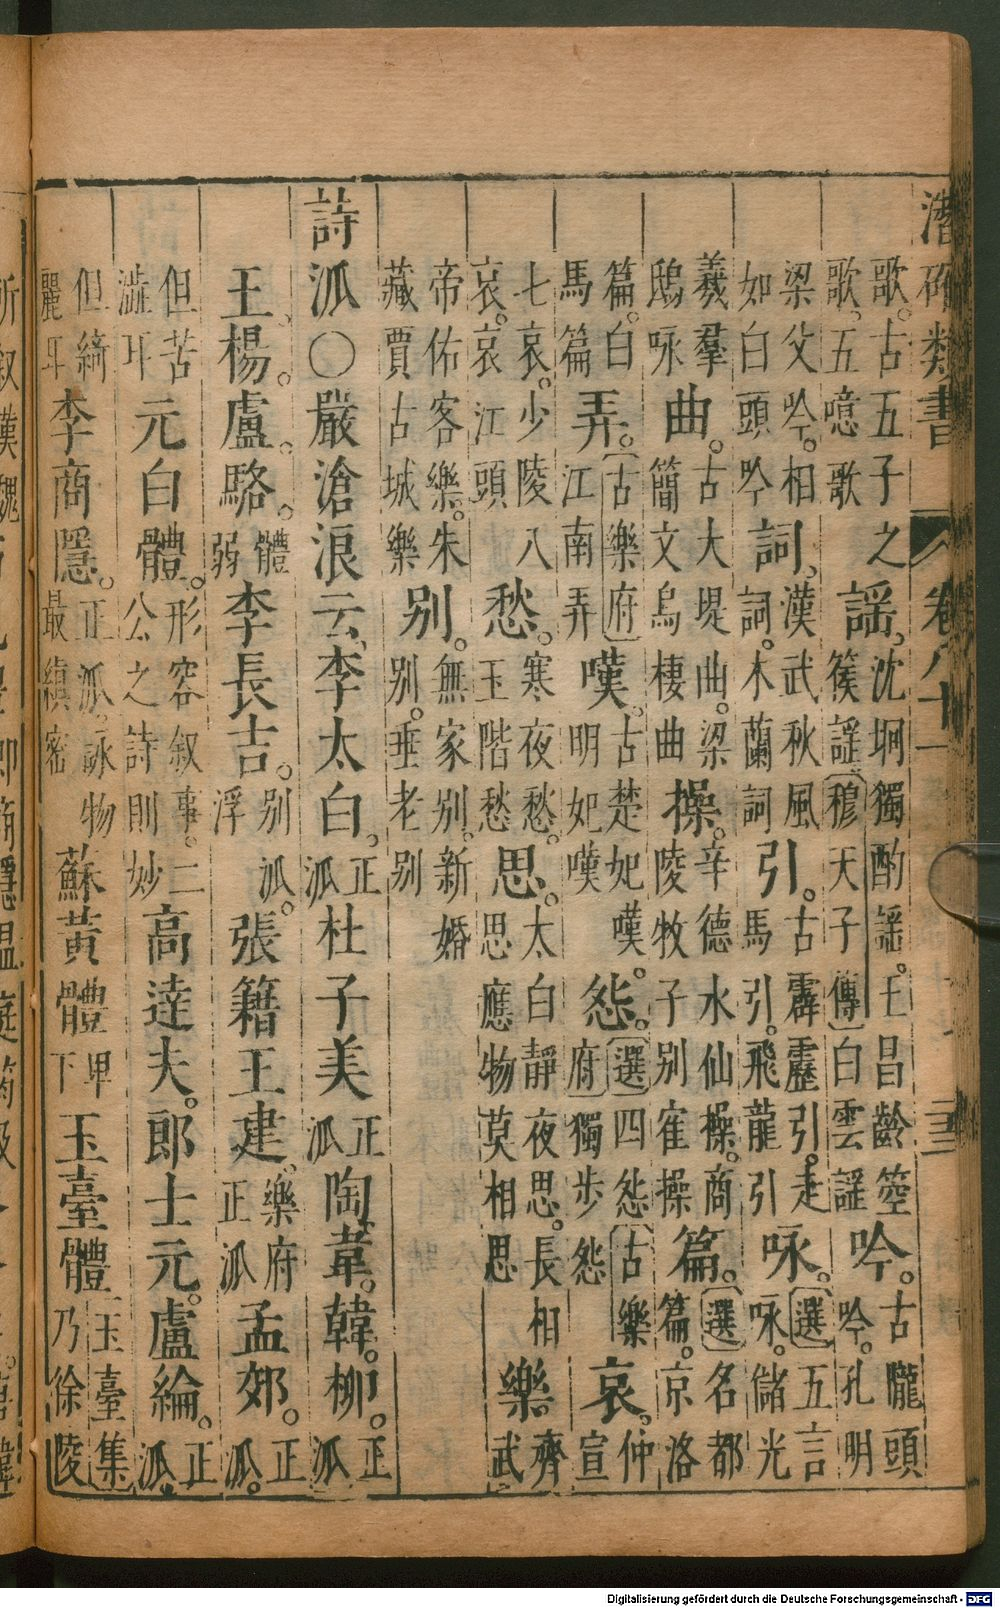 潛確類書 卷八十一
歌。古五子之歌。五噫歌 謠、沈坰獨酌謠。王昌齡箜篌謠〔穆天子傳〕白雲謠 吟。古隴頭吟。孔明
梁父吟。相如白頭吟 詞、漢武秋風詞。木蘭詞 引。古霹靂引。走馬引。飛龍引 咏。〔選〕五言咏。儲光
羲羣鴟咏 曲。古大堤曲。梁簡文烏棲曲 操。辛德水仙操。商陵牧子別寉操 篇。〔選〕名都篇。京洛
篇。白馬篇 弄。〔古樂府〕江南弄 嘆。古楚妃嘆。明妃嘆 怨。〔選〕四怨〔古樂府〕獨步怨 哀、仲宣
七哀。少陵八哀。哀江頭 愁。寒夜愁。玉階愁 思。太白靜夜思。長相思應物莫相思 樂齊武
帝佑客樂。朱藏賈古城樂 別。無家別。新婚別。垂老別
詩派○嚴滄浪云、李太白、正派杜子美正派陶韋。韓柳。正派
王、楊。盧。駱。體弱李長吉。別派。浮張籍王建。樂府正派孟郊。正派。
但苦澁耳元白體。形容叙事。二公之詩則妙高達夫。郎士元。盧綸。正派
但綺麗耳李商隱。正派。詠物最縝密蘇黃體卑下玉臺體〔玉臺集〕乃徐陵
Digitalisierung gefördert durch die Deutsche Forschungsgemeinschaft - DFG